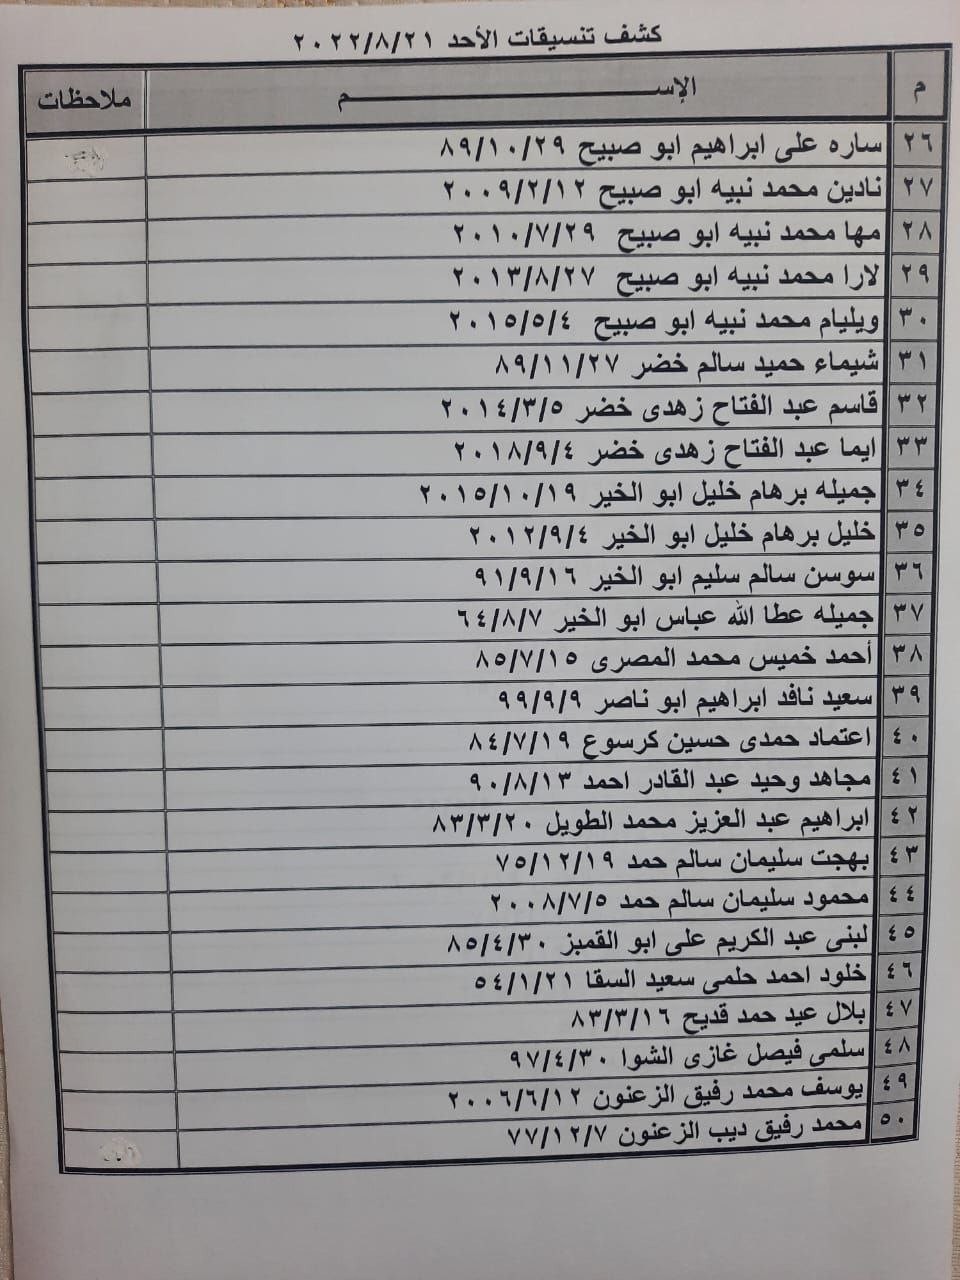 كشف تنسيقات الأحد ٢٠٢٢/٨/٢١
م الإســــــــم ملاحظات
٢٦ ساره على ابراهيم ابو صبيح ٨٩/١٠/٢٩
٢٧ نادين محمد نبيه ابو صبيح ٢٠٠٩/٢/١٢
٢٨ مها محمد نبيه ابو صبيح ٢٠١٠/٧/٢٩
٢٩ لارا محمد نبيه ابو صبيح ٢٠١٣/٨/٢٧
٣٠ ويليام محمد نبيه ابو صبيح ٢٠١٥/٥/٤
٣١ شيماء حميد سالم خضر ٨٩/١١/٢٧
٣٢ قاسم عبد الفتاح زهدى خضر ٢٠١٤/٣/٥
٣٣ ايما عبد الفتاح زهدى خضر ٢٠١٨/٩/٤
٣٤ جميله برهام خليل ابو الخير ٢٠١٥/١٠/١٩
٣٥ خليل برهام خليل ابو الخير ٢٠١٢/٩/٤
٣٦ سوسن سالم سليم ابو الخير ٩١/٩/١٦
٣٧ جميله عطا الله عباس ابو الخير ٦٤/٨/٧
٣٨ أحمد خميس محمد المصرى ٨٥/٧/١٥
٣٩ سعيد نافد ابراهيم ابو ناصر ٩٩/٩/٩
٤٠ اعتماد حمدى حسين كرسوع ٨٤/٧/١٩
٤١ مجاهد وحيد عبد القادر احمد ٩٠/٨/١٣
٤٢ ابراهيم عبد العزيز محمد الطويل ٨٣/٣/٢٠
٤٣ بهجت سليمان سالم حمد ٧٥/١٢/١٩
٤٤ محمود سليمان سالم حمد ٢٠٠٨/٧/٥
٤٥ لبنى عبد الكريم على ابو القمبز ٨٥/٤/٣٠
٤٦ خلود احمد حلمى سعيد السقا ٥٤/١/٢١
٤٧ بلال عيد حمد قديح ٨٣/٣/١٦
٤٨ سلمى فيصل غازى الشوا ٩٧/٤/٣٠
٤٩ يوسف محمد رفيق الزعنون ٢٠٠٦/٦/١٢
٥٠ محمد رفيق ديب الزعنون ٧٧/١٢/٧